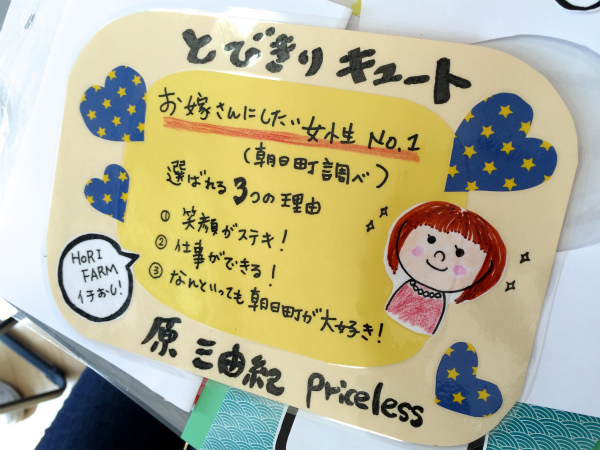 とびきり キュート
お嫁さんにしたい女性 No.1
(朝日町調べ)
選ばれる3つの理由
① 笑顔がステキ!
② 仕事ができる!
③ なんといっても朝日町が大好き!
HORI
FARM
イチおし!
原 三由紀 priceless